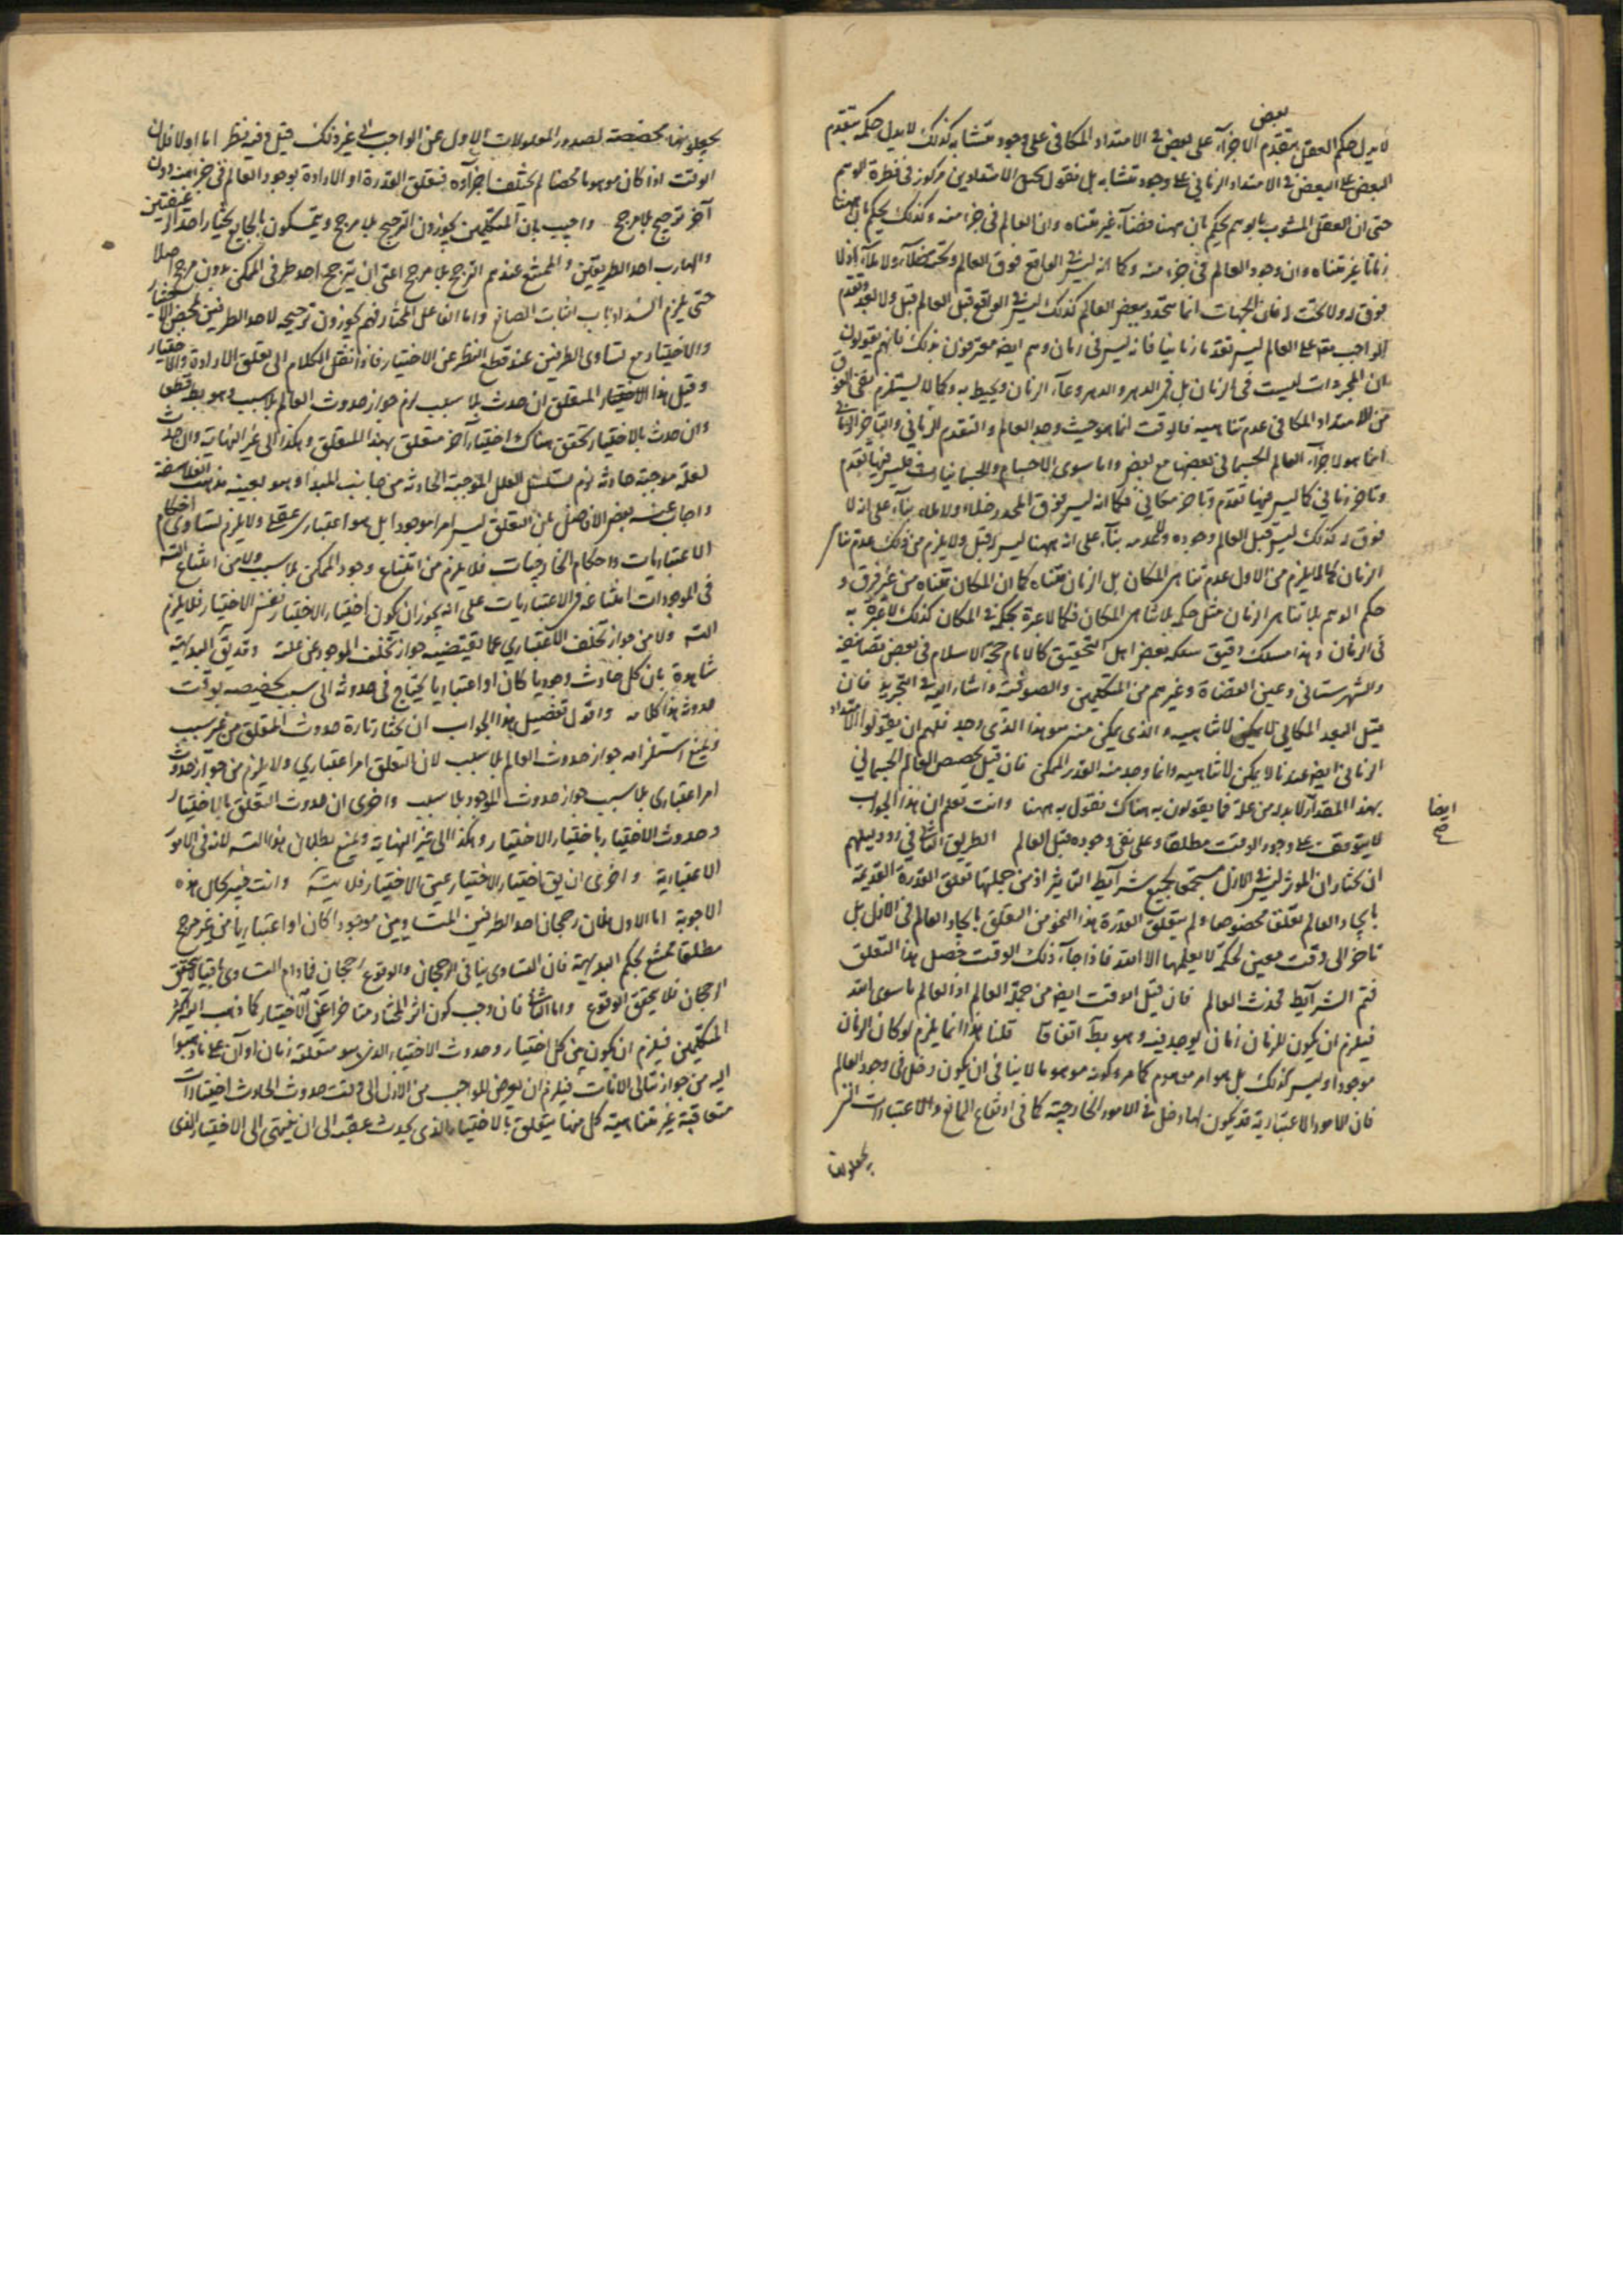 لا يدل حكم العقل بتقدم بعض الاجزآء على بعض فى الامتداد المكانى على وجود متشابه كذلك لا يدل حكمه بتقدم
البعض على البعض فى الامتداد الزمانى على وجود متشابه بل نقول تخيل الامتدادين مركوز فى فطرة الوهم
حتى ان العقل المشوب بالوهم يحكم بان ههنا فضآء غير متناه وان العالم فى جزء منه وكذلك يحكم بان ههنا
زمانا غير متناه وان وجود العالم فى جزء منه وكما انه ليس فى الواقع فوق العالم وتحته خلآء ولا ملآء اذ لا
فوق له ولا تحت له فان الجهات انما تتحدد ببعض العالم كذلك ليس فى الواقع قبل العالم قبل ولا بعد وتقدم
الواجب تعه على العالم ليس تقدما زمانيا فانه ليس فى زمان وهم ايض معترفون بذلك فانهم يقولون
بان المجردات ليست فى الزمان بل فى الدهر والدهر وعآء الزمان ومحيط به وكما لا يستلزم نفى الفوق
من الامتداد المكانى عدم تناهيه فالوقت انما هو حيث وجد العالم والتقدم الزمانى والتاخر الزمانى
انما هو لاجزآء العالم الجسمانى بعضها مع بعض واما سوى الاجسام والجسمانيات فليس فيها تقدم
وتاخر زمانى كما ليس فيها تقدم وتاخر مكانى فكما انه ليس فوق المحدد خلاء ولا ملاء بنآء على انه لا
فوق له كذلك ليس قبل العالم وجوده ولا عدمه بنآء على انه ههنا ليس له قبل ولا يلزم من ذلك عدم تناهى
الزمان كما لا يلزم من الاول عدم تناهى المكان بل الزمان متناه كما ان المكان متناه من غير فرق و
حكم الوهم بلا تناهى الزمان مثل حكمه بلا تناهى المكان فكما لا عبرة بحكمه فى المكان كذلك لا عبرة به
فى الزمان وهذا مسلك دقيق سلكه بعض اهل التحقيق كالامام حجة الاسلام فى بعض تصانيفه
والشهرستانى وعين القضاة وغيرهم من المتكلمين والصوفية واشار اليه فى التجريد فان
قيل البعد المكانى لا يمكن لا تناهيه والذى يمكن منه هو هذا الذى وجد فلهم ان يقولوا الامتداد
الزمانى ايض عندنا لا يمكن لا تناهيه وانما وجد منه القدر الممكن فان قيل تخصص العالم الجسمانى
بهذا المقدار لا بد له من علة فما يقولون به هناك نقول به ههنا وانت تعلم ان هذا الجواب
ايضا صح
لا يتوقف على وجود الوقت مطلقا وعلى نفى وجوده قبل العالم الطريق الثانى فى رد دليلهم
ان نختار ان الموثر ليس فى الازل مستجمعا لجميع شرآيط التاثير اذ من جملتها تعلق القدرة القديمة
بايجاد العالم تعلقا مخصوصا ولم يتعلق القدرة هذا النحو من التعلق بايجاد العالم فى الازل بل
تاخر الى وقت معين لحكمة لا يعلمها الا الله فاذا جآء ذلك الوقت حصل هذا التعلق
فتم الشرآيط فحدث العالم فان قيل الوقت ايض من جملة العالم اذ العالم ما سوى الله
فيلزم ان يكون للزمان زمان يوجد فيه وهو بط اتفاقا قلنا هذا انما يلزم لو كان الزمان
موجودا وليس كذلك بل هو امر موهوم كما مر وكونه موهوما لا ينافى ان يكون له دخل فى وجود العالم
فان الامور الاعتبارية قد يكون لها دخل فى الامور الخارجية كما فى ارتفاع المانع والاعتبارات التى
يجعلونها
يجعلونها مخصصة لصدور المعلولات الاول عن الواجب الى غير ذلك قيل وفيه نظر اما اولا فلان
الوقت اذا كان موهوما محضا لم يختلف اجزآؤه فتعلق القدرة او الارادة بوجود العالم فى جزء منه دون
آخر ترجيح بلا مرجح واجيب بان المتكلمين يجوزون الترجيح بلا مرجح ويتمسكون بالجايع يختار احد الرغيفين
والهارب احد الطريقين والممتنع عندهم الترجح بلا مرجح اعنى ان يترجح احد طرفى الممكن بدون مرجح اصلا
حتى يلزم انسداد باب اثبات الصانع واما الفاعل المختار فهم يجوزون ترجيحه لاحد الطرفين لمحض الاختيار
والاختيار مع تساوى الطرفين عند قطع النظر عن الاختيار فاذا نقل الكلام الى تعلق الارادة والاختيار
وقيل هذا الاختيار المتعلق ان حدث بلا سبب لزم جواز حدوث العالم بلا سبب وهو بط قطعا
وان حدث بالاختيار تحقق هناك اختيار آخر متعلق بهذا المتعلق وهكذا الى غير النهاية وان حدث
لعلة موجبة حادثة لزم تسلسل العلل الموجبة الحادثة من جانب المبدا وهو بعينه مذهب الفلاسفة
واجاب عنه بعض الافاضل بان التعلق ليس امرا موجودا بل هو اعتبارى عقلى ولا يلزم تساوى احكام
الاعتباريات واحكام الخارجيات فلا يلزم من امتناع وجود الممكن بلا سبب ولا من امتناع التسه
فى الموجودات امتناعه فى الاعتباريات على انه يجوز ان يكون اختيار الاختيار نفس الاختيار فلا يلزم
التسه ولا من جواز تخلف الاعتبارى عما يقتضيه جواز تخلف الموجود عن علته وقد يق البداهة
شاهدة بان كل حادث وجوديا كان او اعتباريا يحتاج فى حدوثه الى سبب تخصيصه بوقت
حدوثه هذا كلامه واقول تفصيل هذا الجواب ان نختار تارة حدوث المتعلق من غير سبب
ونمنع استلزامه جواز حدوث العالم بلا سبب لان التعلق امر اعتبارى ولا يلزم من جواز حدوث
امر اعتبارى بلا سبب جواز حدوث الموجود بلا سبب واخرى ان حدوث التعلق بالاختيار
وحدوث الاختيار باختيار الاختيار وهكذا الى غير النهاية ونمنع بطلان هذا التسه لانه فى الامور
الاعتبارية واخرى ان يق اختيار الاختيار عين الاختيار فلا يتسه وانت خبير بحال هذه
الاجوبة اما الاول فلان رجحان احد الطرفين المتساويين موجودا كان او اعتباريا من غير مرجح
مطلقا ممتنع بحكم البديهة فان التساوى ينافى الرجحان والوقوع رجحان فما دام التساوى باقيا لا يتحقق
الرجحان فلا يتحقق الوقوع واما الثانى فان وجب كون اثر المختار متاخرا عن الاختيار كما ذهب اليه اكثر
المتكلمين فيلزم ان يكون بين كل اختيار وحدوث الاختيار الذى هو متعلقه زمان او آن على ما ذهبوا
اليه من جواز تتالى الانات فيلزم ان يعرض للواجب من الازل الى وقت حدوث الحادث اختيارات
متعاقبة غير متناهية كل منها يتعلق بالاختيار الذى يحدث عقبه الى ان ينتهى الى الاختيار الذى